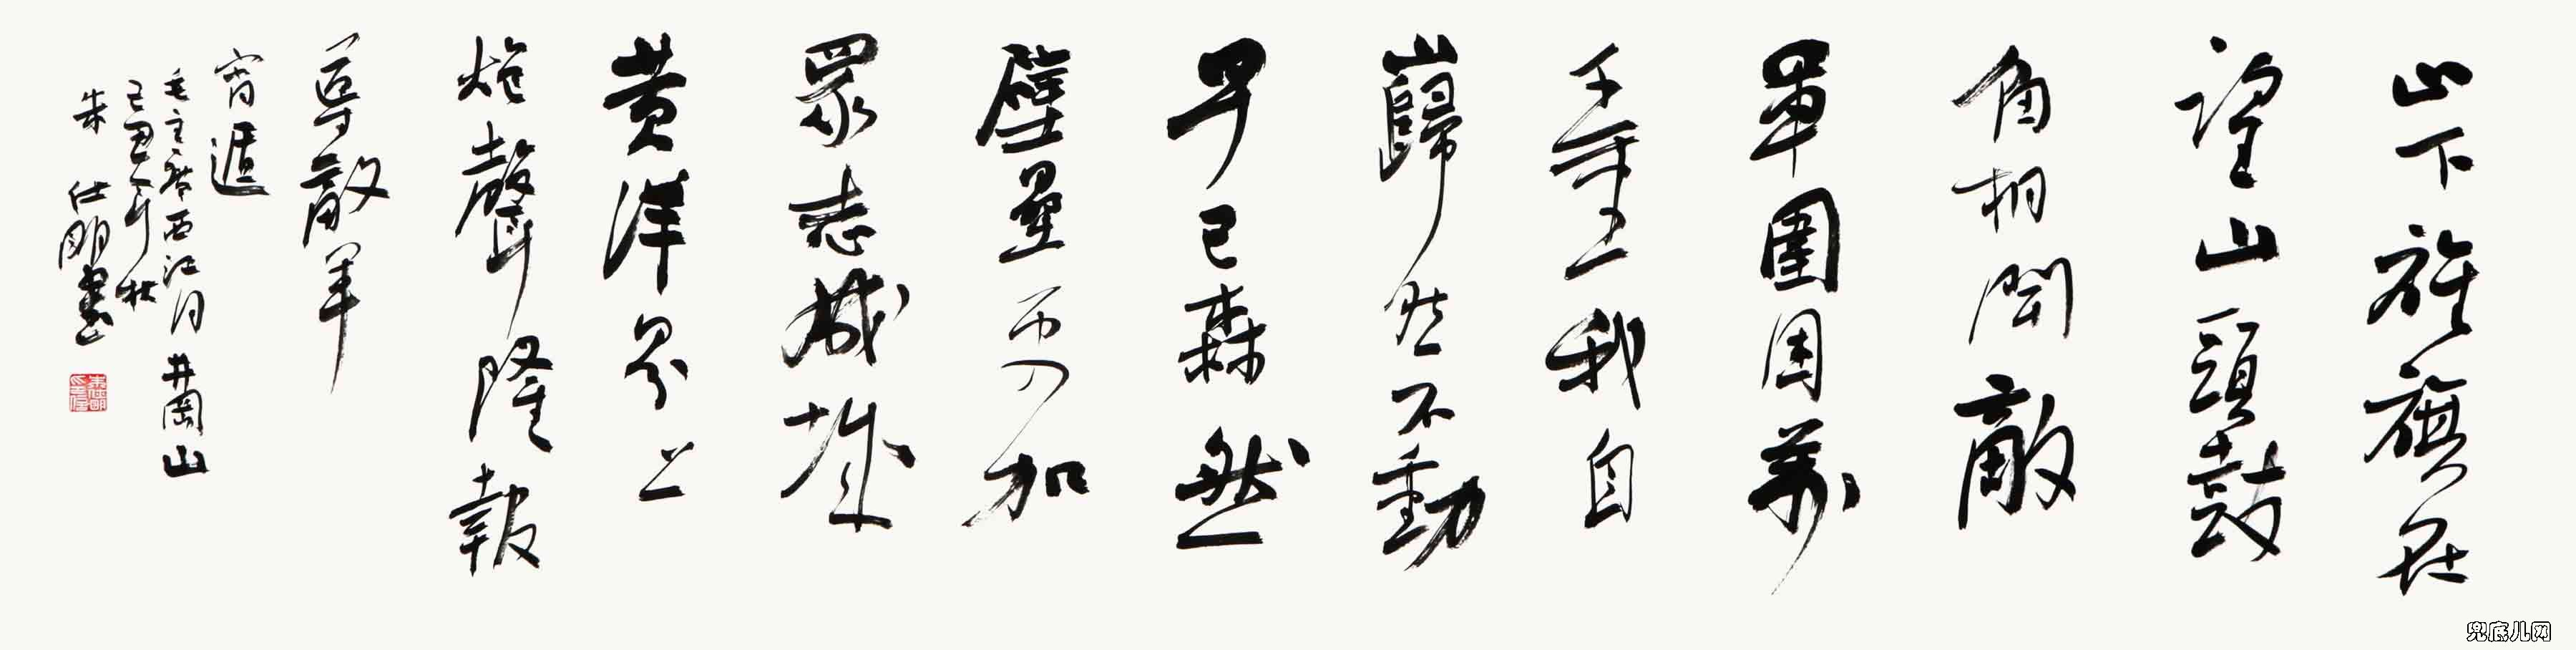 山下旌旗在
望山頭鼓
角相聞敵
軍圍困萬
千重我自
巋然不動
早已森然
壁壘更加
眾志成城
黄洋界上
炮聲隆報
導敵軍
宵遁
毛主席西江月井岡山
己丑年秋
朱仕明書
兜底儿网